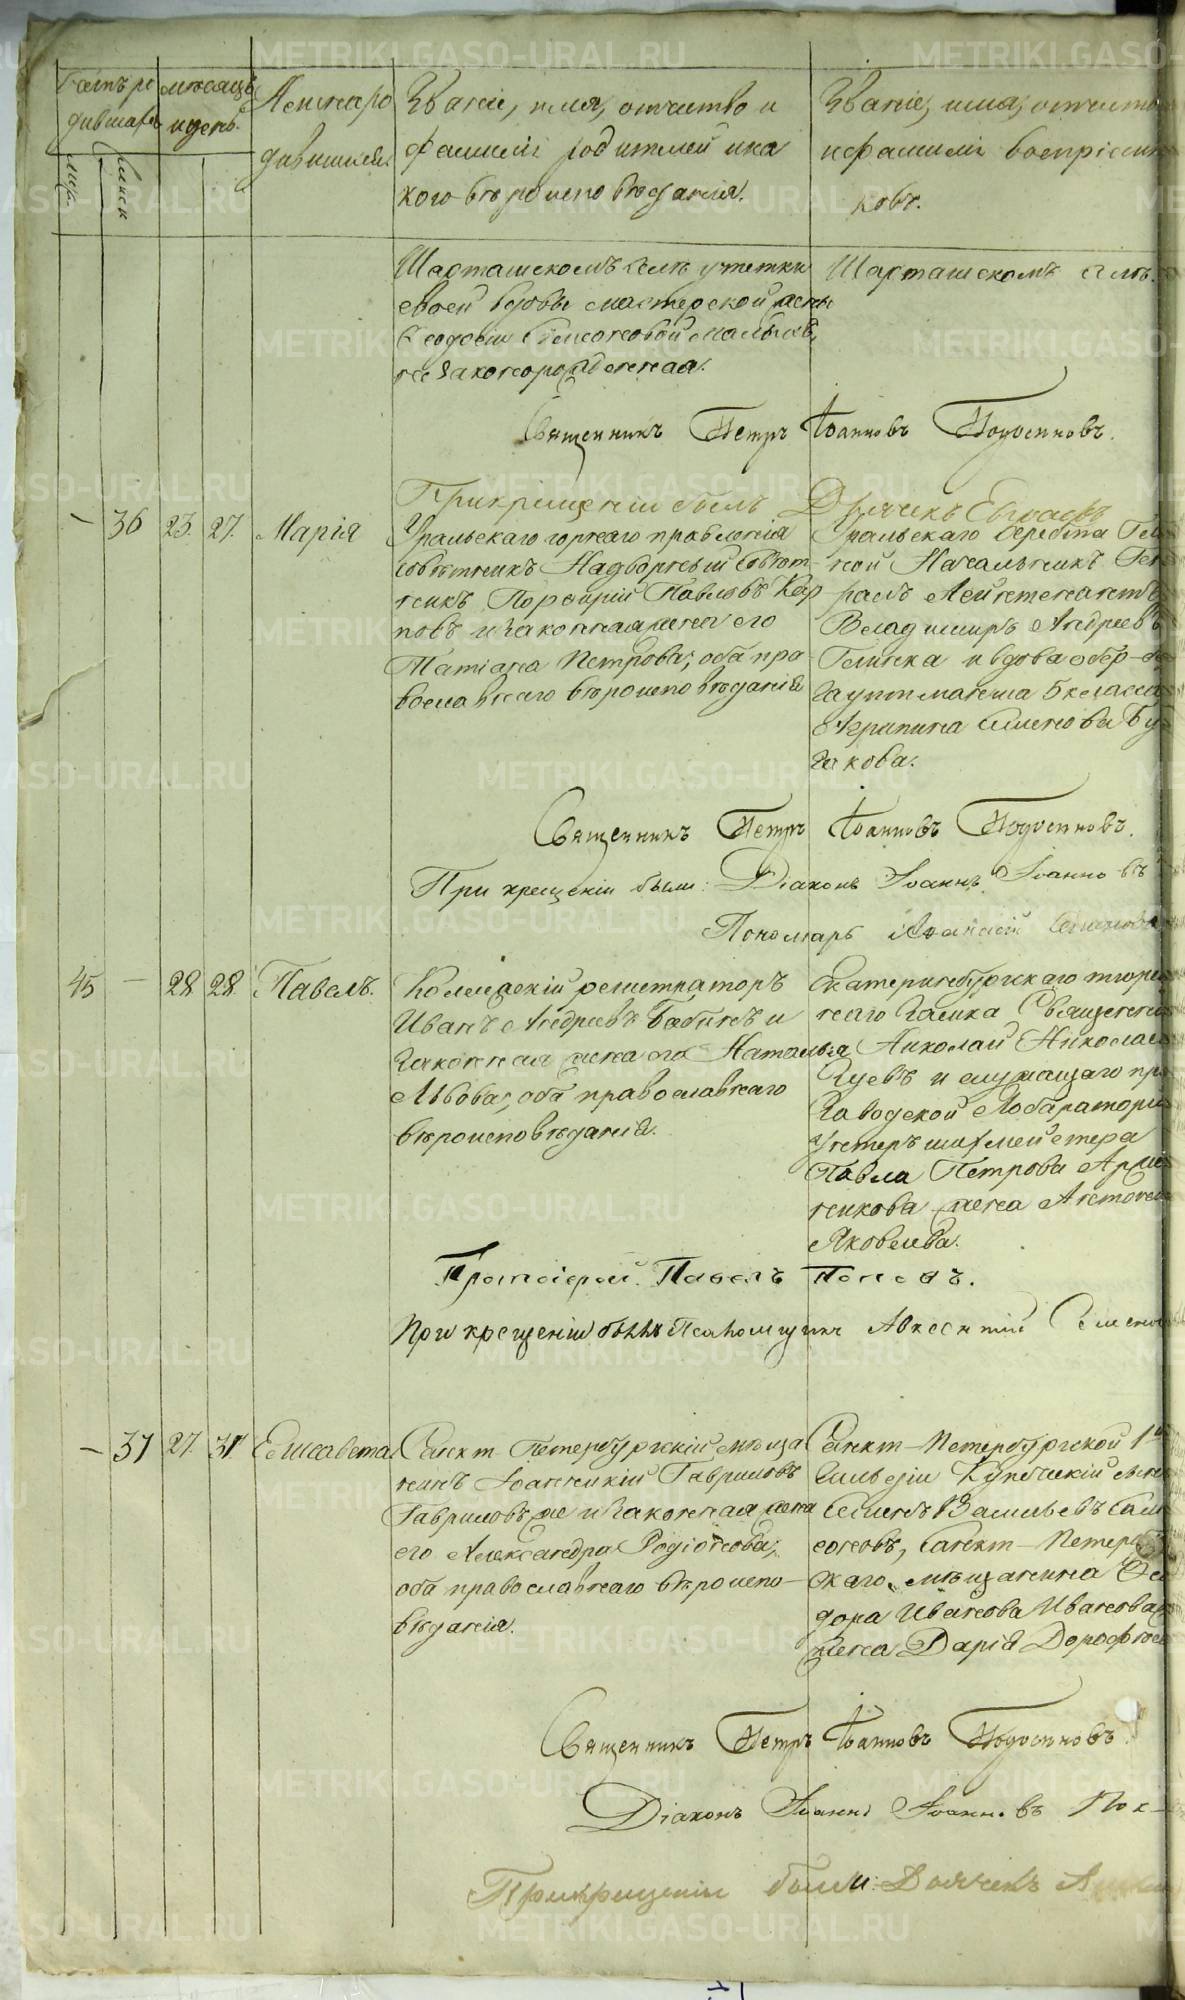 Имена ро
дившихся.
Званіе, имя, отчество и
фамилія родителей и ка
кого вѣроисповѣданія.
Званіе, имя, отчество
и фамилія воспріемни
ковъ.
муж.
женск
Шарташскомъ селѣ у тетки
своей вдовы мастерской жены
незаконорожденная.
Шарташскомъ селѣ.
Священникъ Петръ Іоанновъ
При крещеніи былъ Дьячекъ
— 36 23. 27. Марія
Уральскаго горнаго правленія
совѣтникъ Надворный Совѣт-
никъ Порфирій Павловъ Кар
повъ и законная жена его
Татіана Петрова; оба пра
вославнаго вѣроисповѣданія
Уральскаго Хребта
ной Начальникъ Ген
ралъ Лейтенантъ
Владимиръ Андреевъ
Глинка и вдова обер-бе
гауптманша 5 класса
Агрипина Семенова Бу
гакова.
Священникъ Петръ Іоанновъ
При крещеніи были: Діаконъ Іоаннъ Іоанновъ
Пономарь
45 — 28 28 Павелъ.
Коллежскій регистраторъ
Иванъ Андреевъ Бабинъ и
законная жена его Наталья
Львова; оба православнаго
вѣроисповѣданія.
Екатеринбургскаго тюрем
наго Замка Священник
Николай Николаев
и служащаго при
Заводской Лобараторіи
Унтеръ шихмейстера
Павла Петрова
никова жена Антонина
Яковлева.
Протоіерей Павелъ Поповъ.
При крещеніи былъ Псаломщикъ Авксентий Семенов
— 37 27. 31. Елисавета
Санкт Петербургскій мѣща
нинъ Іоанникій Гавриловъ
Гавриловъ же и законная жена
его Александра Родіонова;
оба православнаго вѣроиспо-
вѣданія.
Санкт-Петербургской 1й
Гильдіи Купеческій
Васильевъ Сам
соновъ, Санкт-Петерб
скаго мѣщанина Фео
дора Иванова Иванова
жена Дарія Дорофеева
Священникъ Петръ Іоанновъ
Діаконъ Іоаннъ Іоанновъ
При крещеніи были: Дьячекъ